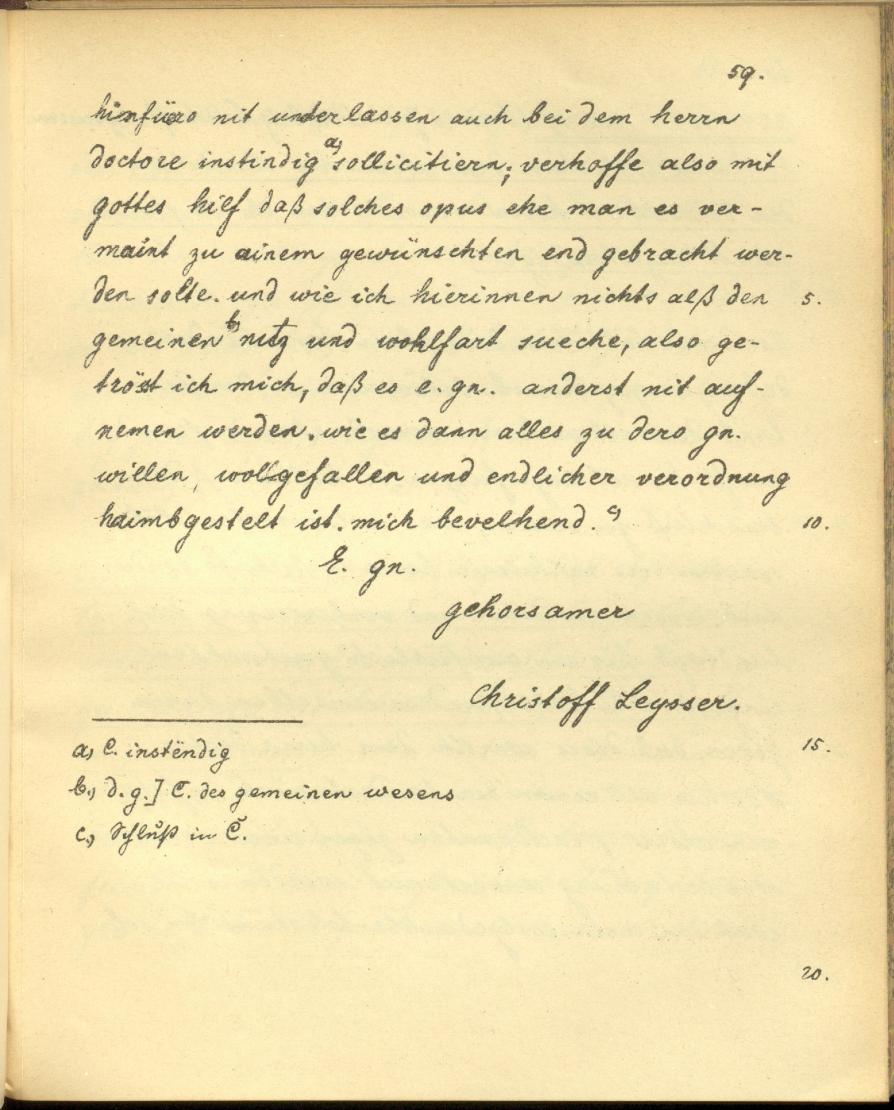 59.
hinfüro nit underlassen auch bei dem herrn
doctore instindig a) sollicitiern; verhoffe also mit
gottes hilf daß solches opus ehe man es ver-
maint zu ainem gewünschten end gebracht wer-
den solte. und wie ich hierinnen nichts alß den 5.
gemeinen b) nutz und wohlfart sueche, also ge-
tröst ich mich, daß es e. gn. anderst nit auf-
nemen werden. wie es dann alles zu dero gn.
willen, wollgefallen und endlicher verordnung
haimbgestelt ist. mich bevelhend. c) 10.
E. gn.
gehorsamer
Christoff Leysser.
a) C. instëndig 15.
b) d. g.] C. des gemeinen wesens
c) Schluß in C.
20.